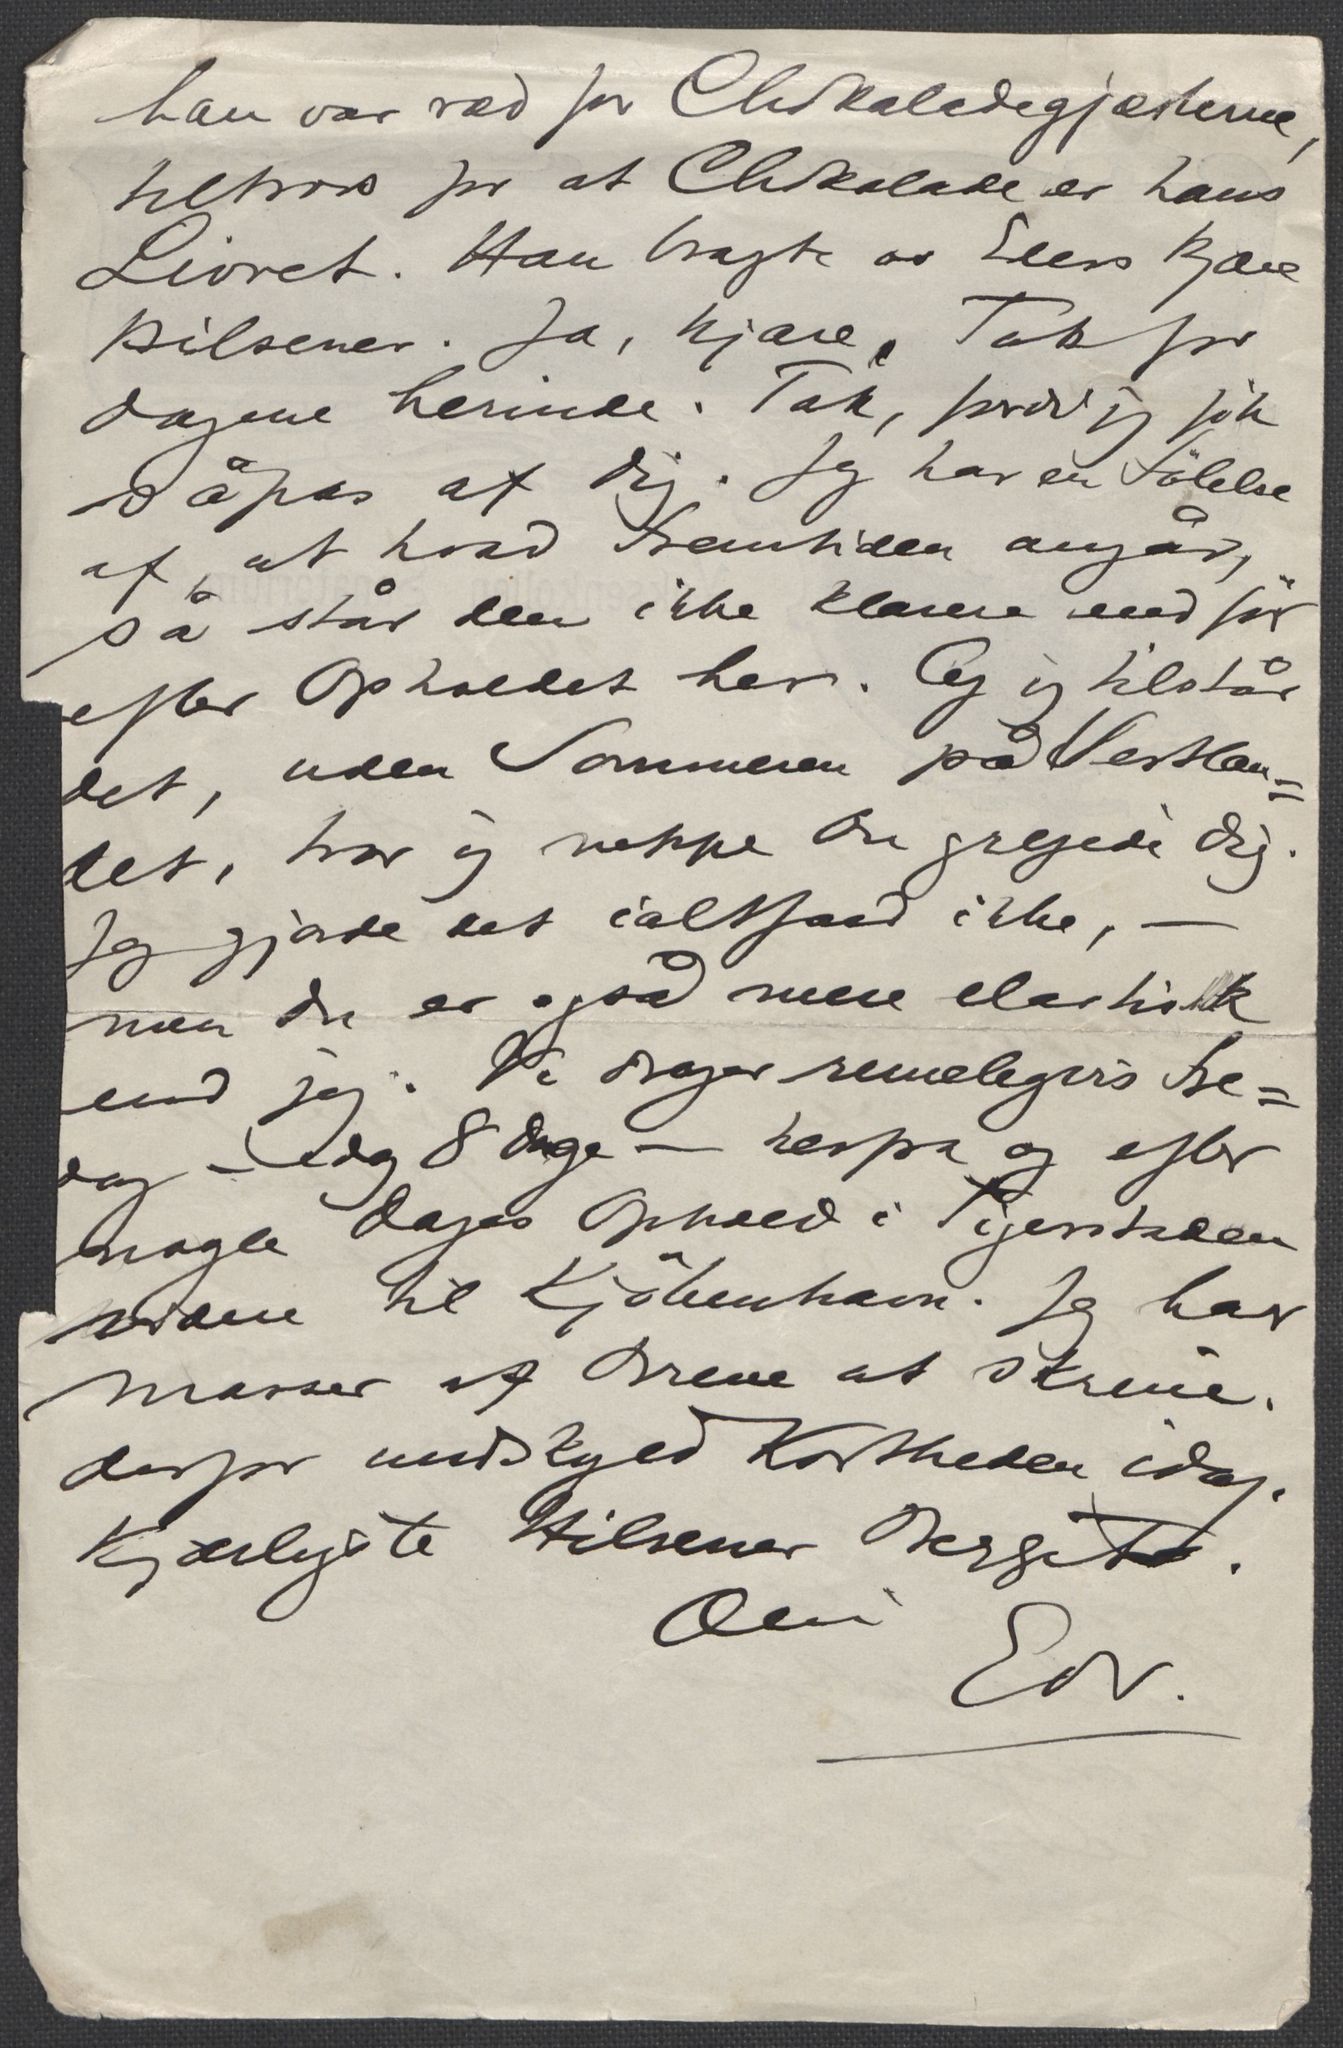 han var ræd for Chokoladegjæsterne,
tiltross for at Chokolade er hans
Livret. Han bragte os Eders kjære
Hilsener. Ja, kjære, Tak for
dagene herinde. Tak, fordi jeg fik
såpas af Dig. Jeg har en Følelse
af, at hvad Fremtiden angår,
så står den ikke klarere end før
efter Opholdet her. Og jeg tilstår
det, uden Sommeren på Vestlan=
det, tror jeg neppe Du grejede Dig.
Jeg gjorde det ialtfald ikke, —
men Du er også mere elastisk
end jeg. Vi drager rimeligvis Fre=
dag – idag 8 Dage – herfra og efter
nogle Dages Ophold i Tigerstaden
videre til Kjöbenhavn. Jeg har
masser af Breve at skrive.
derfor undskyld Kortheden idag.
Kjærligste Hilsener
Din
Edv.